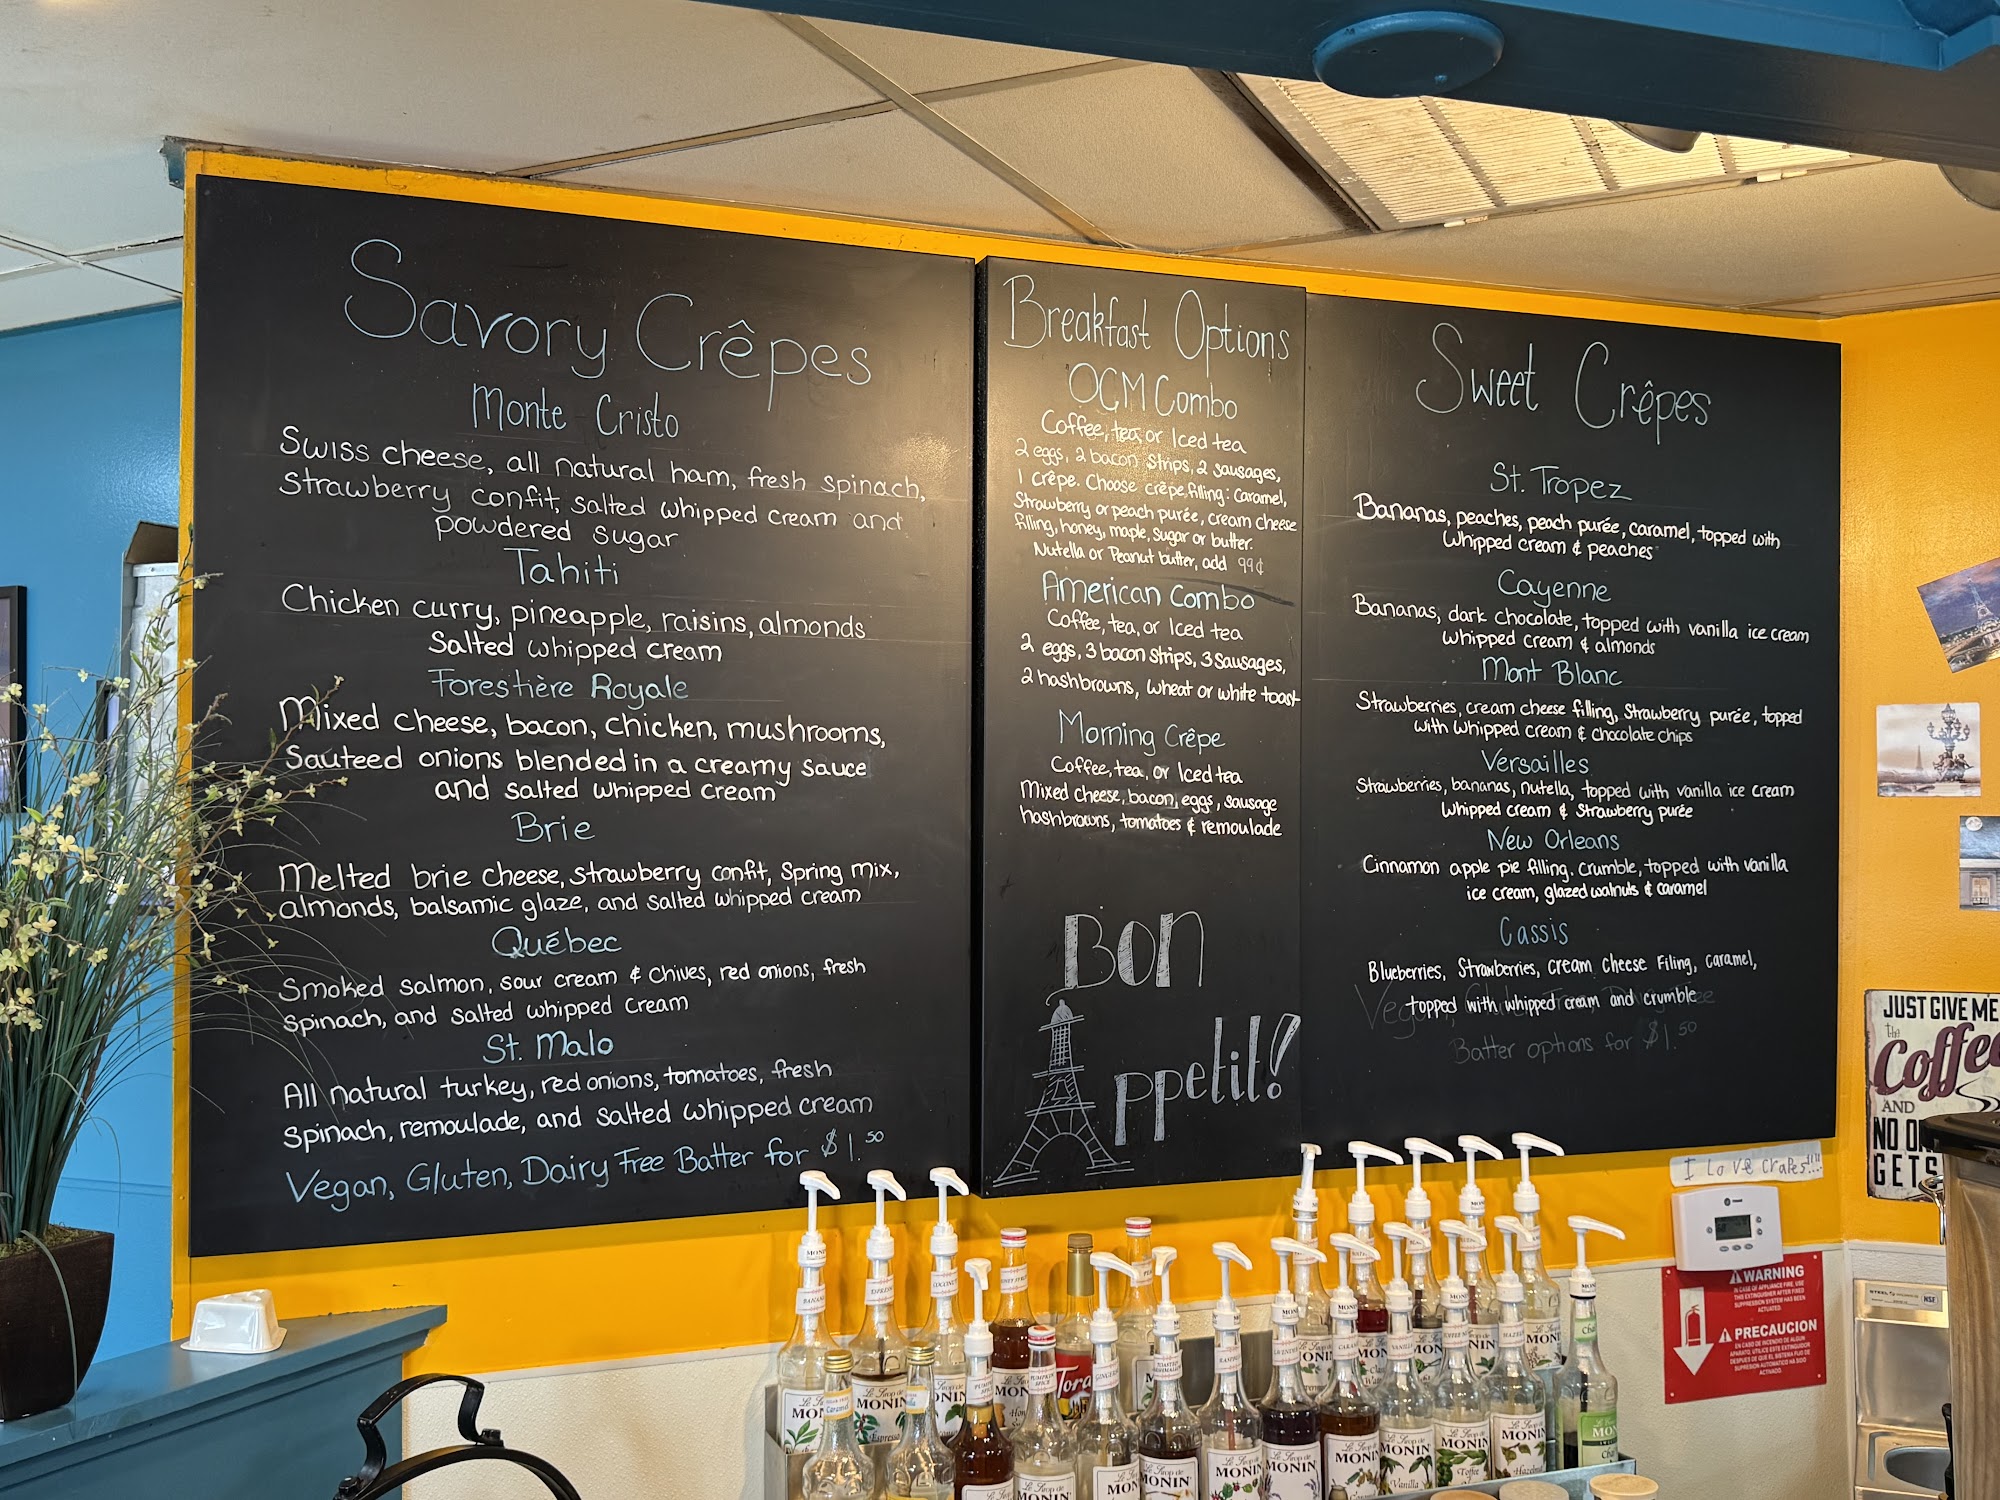 Savory Crêpes
Monte Cristo
Swiss cheese, all natural ham, fresh spinach,
Strawberry confit, salted whipped cream and
powdered sugar
Tahiti
Chicken curry, pineapple, raisins, almonds
Salted whipped cream
Forestière Royale
Mixed cheese, bacon, chicken, mushrooms,
Sauteed onions blended in a creamy sauce
and salted whipped cream
Brie
Melted brie cheese, strawberry confit, Spring mix,
almonds, balsamic glaze, and salted whipped cream
Québec
Smoked salmon, sour cream & Chives, red onions, fresh
Spinach, and salted whipped Cream
St. Malo
All natural turkey, red onions, tomatoes, fresh
Spinach, remoulade, and salted whipped cream
Vegan, Gluten, Dairy Free Batter for $1.50
Breakfast Options
OCM Combo
Coffee, tea, or Iced tea
2 eggs, 2 bacon strips, 2 sausages,
1 crêpe. Choose crêpe filling: Caramel,
Strawberry or peach purée, cream cheese
filling, honey, maple, sugar or butter.
Nutella or Peanut butter, add 99¢
American Combo
Coffee, tea, or Iced tea
2 eggs, 3 bacon strips, 3 sausages,
2 hashbrowns, wheat or white toast
Morning Crêpe
Coffee, tea, or Iced tea
Mixed cheese, bacon, eggs, sausage
hashbrowns, tomatoes & remoulade
Bon
Appetit!
Sweet Crêpes
St. Tropez
Bananas, peaches, peach purée, caramel, topped with
Whipped cream & peaches
Cayenne
Bananas, dark chocolate, topped with vanilla ice cream
whipped cream & almonds
Mont Blanc
Strawberries, cream cheese filling, Strawberry purée, topped
with whipped cream & chocolate chips
Versailles
Strawberries, bananas, nutella, topped with vanilla ice cream
Whipped cream & Strawberry purée
New Orleans
Cinnamon apple pie filling, crumble, topped with vanilla
ice cream, glazed walnuts & caramel
Cassis
Blueberries, Strawberries, cream cheese Filing, caramel,
topped with whipped cream and crumble
Batter options for $1.50
I LOVE CraPes!!!!
JUST GIVE ME
the
Coffee
AND
NO
GETS
WARNING
IN CASE OF APPLIANCE FIRE, USE
THIS EXTINGUISHER AFTER FIXED
SUPPRESSION SYSTEM HAS BEEN
ACTUATED.
PRECAUCION
MONIN
Torani
MONIN
Vanilla
MONIN
Toffee
MONIN